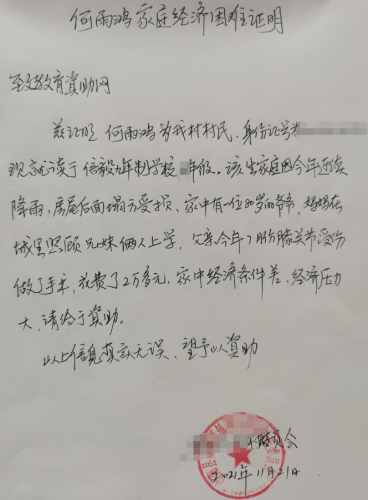 何雨鸿家庭经济困难证明
至善教育资助网
兹证明 何雨鸿为我村村民,身份证号为
现就读于信毅九年制学校 年级。该生家庭因今年连续
降雨,房屋后面塌方受损、家中有一位80岁的爷爷,妈妈在
城里照顾兄妹俩人上学,父亲今年7月份膝关节受伤
做了手术,花费了2万多元,家中经济条件差、经济压力
大、请给于资助。
以上信息真实无误、望予以资助
村委员会
2021年11月21日